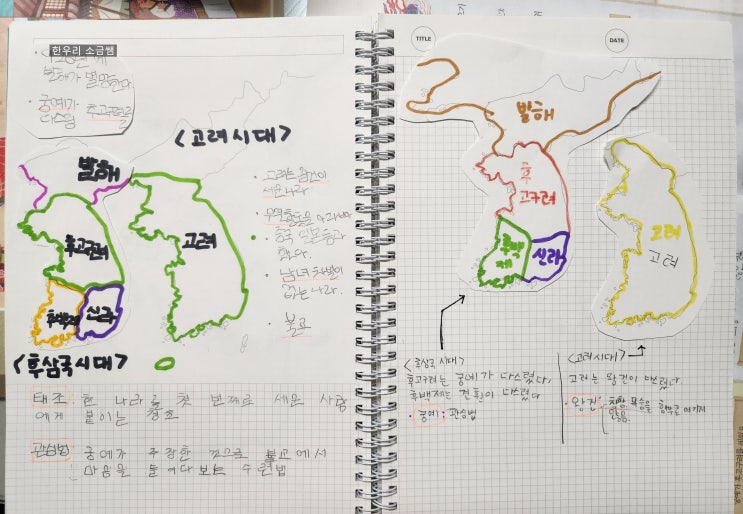 한우리 소금쌤
발해가 멸망한다.
· 궁예가 후고구려를
다스림
<고려시대>
발해
후고구려
후백제
신라
고려
<후삼국시대>
· 고려는 왕건이
세운나라.
· 무역활동을
· 중국
· 남녀 차별이
없는 나라.
· 불교
태조 : 한 나라를 첫 번째로 세운 사람
에게 붙이는 칭호
관심법 : 궁예가 주장한 것으로 불교에서
마음을 들여다보는 수련법
TITLE
DATE
발해
후
고구려
후백
제
신라
고려
고려
<후삼국 시대>
후고구려는 궁예가 다스렸다.
후백제는 견훤이 다스렸다
· 궁예 : 관심법
<고려시대>
고려는 왕건이 다스렸다.
· 왕건 :
않음.